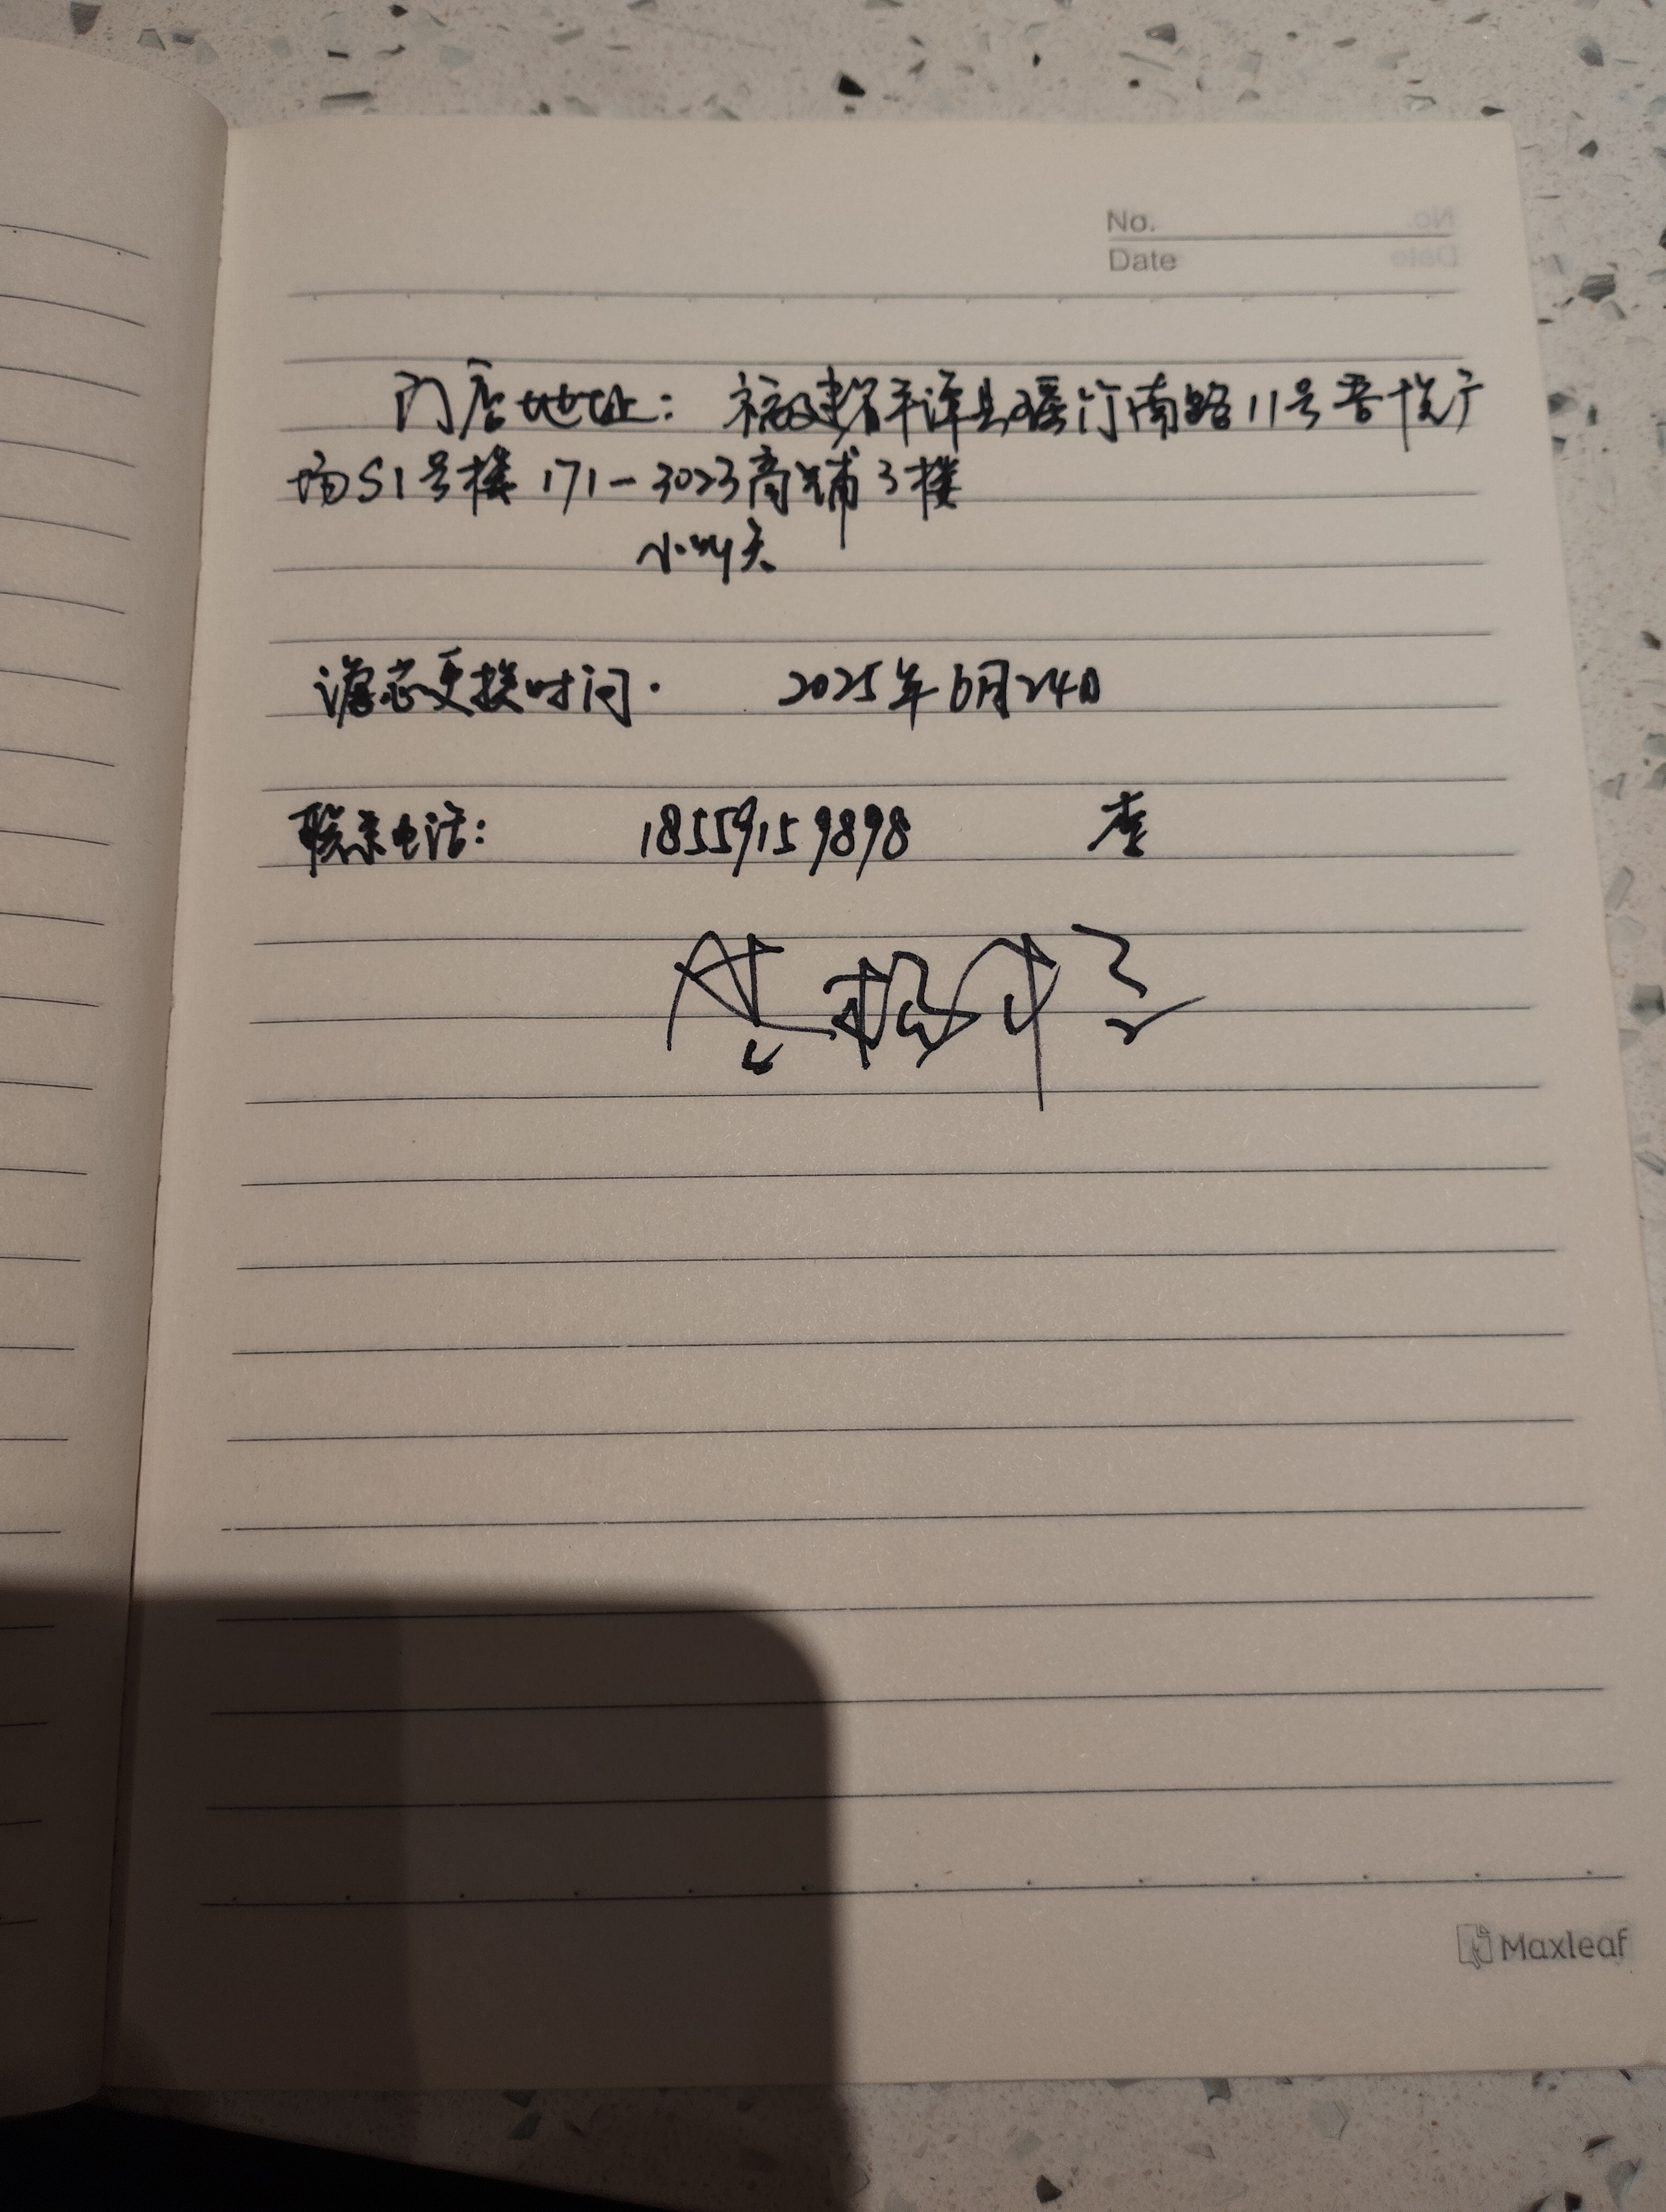 No.
Date
门店地址：福建省平潭县瑶竹南路11号吾悦广
场S1号楼171-3023商铺3楼
小叫天
滤芯更换时间. 2025年6月24日
联系电话: 18559159898 李
Maxleaf